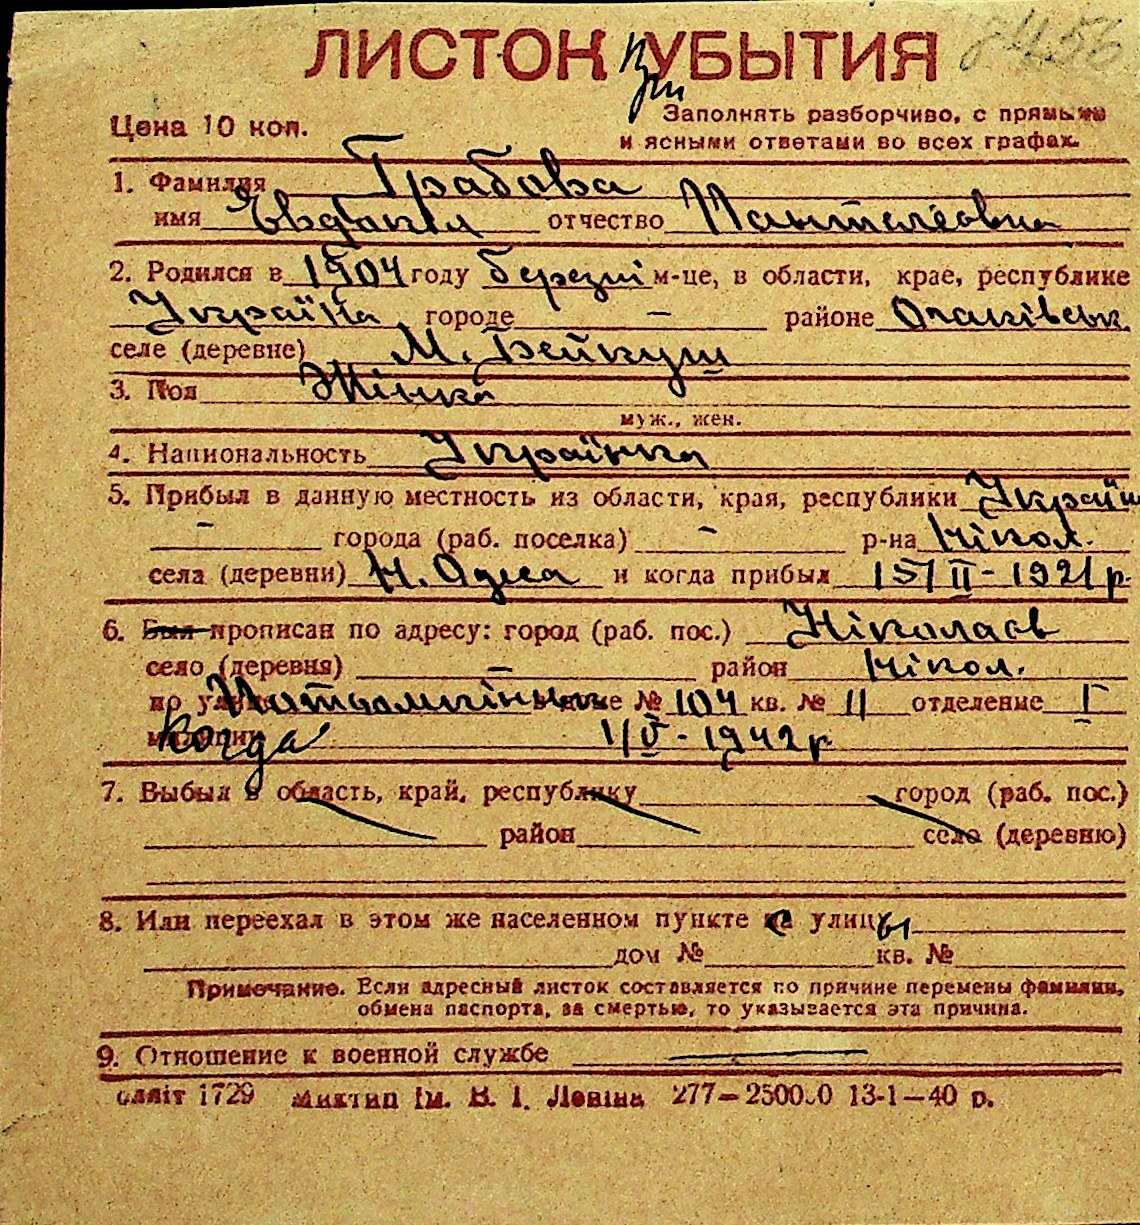 ЛИСТОК УБЫТИЯ
Цена 10 коп.
Заполнять разборчиво, с прямыми
и ясными ответами во всех графах.
1. Фамилия Грабова
имя Евдокія отчество Панталеовна
2. Родился в 1904 году березні м-це, в области, крае, республике
Україна городе — районе Очаківськ.
селе (деревне) М. Бейкуш
3. Пол Жінка
муж., жен.
4. Национальность Українка
5. Прибыл в данную местность из области, края, республики Україн
— города (раб. поселка) — р-на Нікол.
села (деревни) Н. Одеса и когда прибыл 15/II - 1921 р.
6. Был прописан по адресу: город (раб. пос.) Ніколаєв
село (деревня) — район Нікол.
по № 104 кв. № 11 отделение I
Когда 1/V - 1942 р
7. Выбыл в область, край, республику город (раб. пос.)
район село (деревню)
8. Или переехал в этом же населенном пункте с улицы
дом № кв. №
Примечание. Если адресный листок составляется по причине перемены фамилии,
обмена паспорта, за смертью, то указывается эта причина.
9. Отношение к военной службе —
1729 ім. В. І. Леніна 277—25000 13-1—40 р.